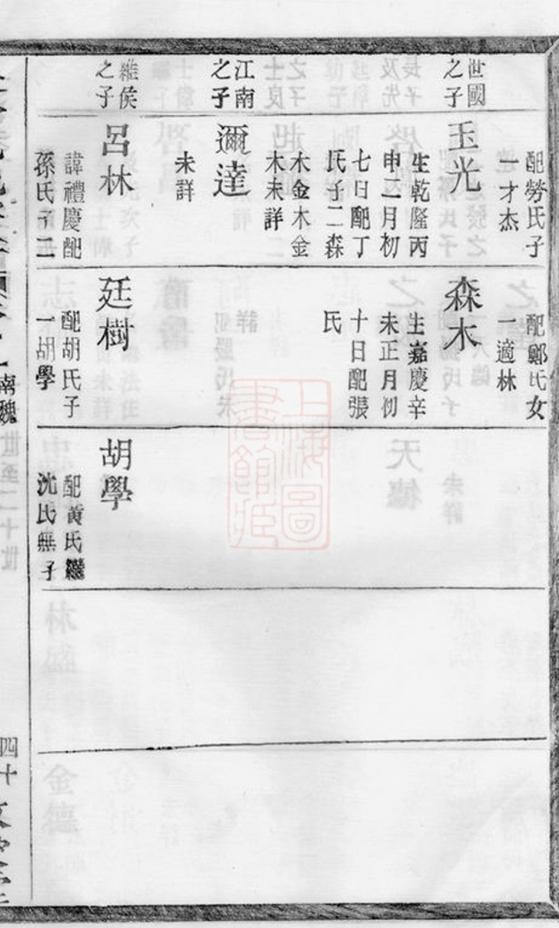 世國
之子
江南
之子
維侯
之子
配勞氏子
一才杰
玉光
生乾隆丙
申二月初
七日配丁
氏子二森
木金木金
木未詳
彌達
未詳
呂林
諱禮慶配
孫氏子
配鄭氏女
一適林
森木
生嘉慶辛
未正月初
十日配張
氏
廷樹
配胡氏子
一胡學
胡學
配黃氏繼
沈氏無子
南魏
四十
上海圖
書館藏